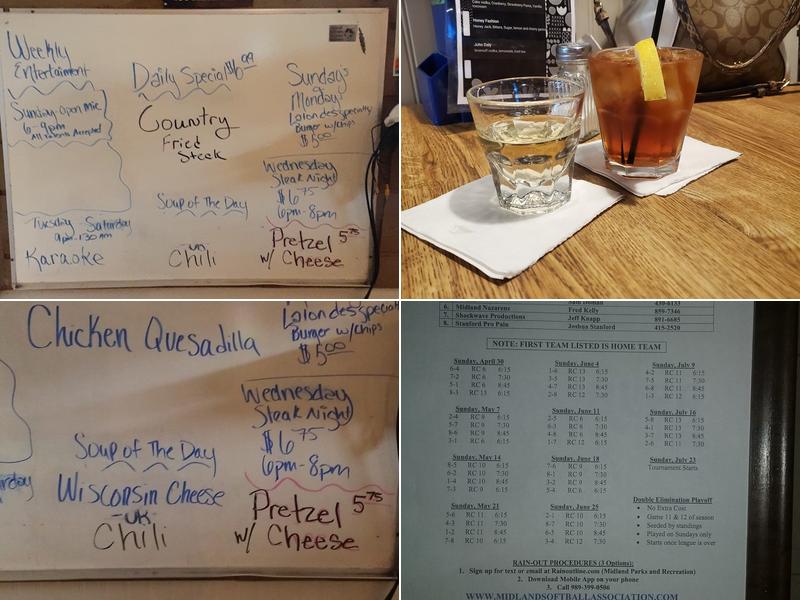 Weekly
Entertainment
Sunday Open Mic
6-9pm
All Talents Accepted
Tuesday - Saturday
9pm-1:30am
Karaoke
Daily Special $6.99
Country
Fried
Steak
Soup of The Day
Chili
Sunday's
Monday
Lalonde's Specialty
Burger w/chips
$5.00
Wednesday
Steak Night
$6.75
6pm-8pm
Pretzel 5.75
w/ Cheese
Honey Fashion
John Daly
Chicken Quesadilla
Soup of The Day
Wisconsin Cheese
-UK-
Chili
Lalondes Special
Burger w/chips
$5.00
Wednesday
Steak Night
$6.75
6pm-8pm
Pretzel 5.75
w/ Cheese
6. Midland Nazarene Fred Kelly 859-7346
7. Shockwave Productions Jeff Knapp 891-6685
8. Stanford Pro Pain Joshua Stanford 415-2520
NOTE: FIRST TEAM LISTED IS HOME TEAM
Sunday, April 30
6-4 RC 6 6:15
7-2 RC 6 7:30
5-1 RC 6 8:45
8-3 RC 13 6:15
Sunday, May 7
2-4 RC 9 6:15
5-7 RC 9 7:30
8-6 RC 9 8:45
3-1 RC 6 6:15
Sunday, May 14
8-5 RC 10 6:15
6-2 RC 10 7:30
1-4 RC 10 8:45
7-3 RC 9 6:15
Sunday, May 21
5-6 RC 11 6:15
4-3 RC 11 7:30
1-2 RC 11 8:45
7-8 RC 10 6:15
Sunday, June 4
1-6 RC 13 6:15
3-5 RC 13 7:30
4-7 RC 13 8:45
2-8 RC 12 7:30
Sunday, June 11
2-5 RC 6 6:15
6-3 RC 6 7:30
4-8 RC 6 8:45
1-7 RC 12 6:15
Sunday, June 18
7-6 RC 9 6:15
8-1 RC 9 7:30
3-2 RC 9 8:45
5-4 RC 6 6:15
Sunday, June 25
2-1 RC 10 6:15
8-7 RC 10 7:30
6-5 RC 10 8:45
3-4 RC 12 7:30
Sunday, July 9
4-2 RC 11 6:15
7-5 RC 11 7:30
6-8 RC 11 8:45
1-3 RC 12 6:15
Sunday, July 16
5-8 RC 13 6:15
4-1 RC 13 7:30
3-7 RC 13 8:45
2-6 RC 11 7:30
Sunday, July 23
Tournament Starts
Double Elimination Playoff
• No Extra Cost
• Game 11 & 12 of season
• Seeded by standings
• Played on Sundays only
• Starts once league is over
RAIN-OUT PROCEDURES (3 Options):
1. Sign up for text or email at Rainoutline.com (Midland Parks and Recreation)
2. Download Mobile App on your phone
3. Call 989-399-0506
WWW.MIDLANDSOFTBALLASSOCIATION.COM